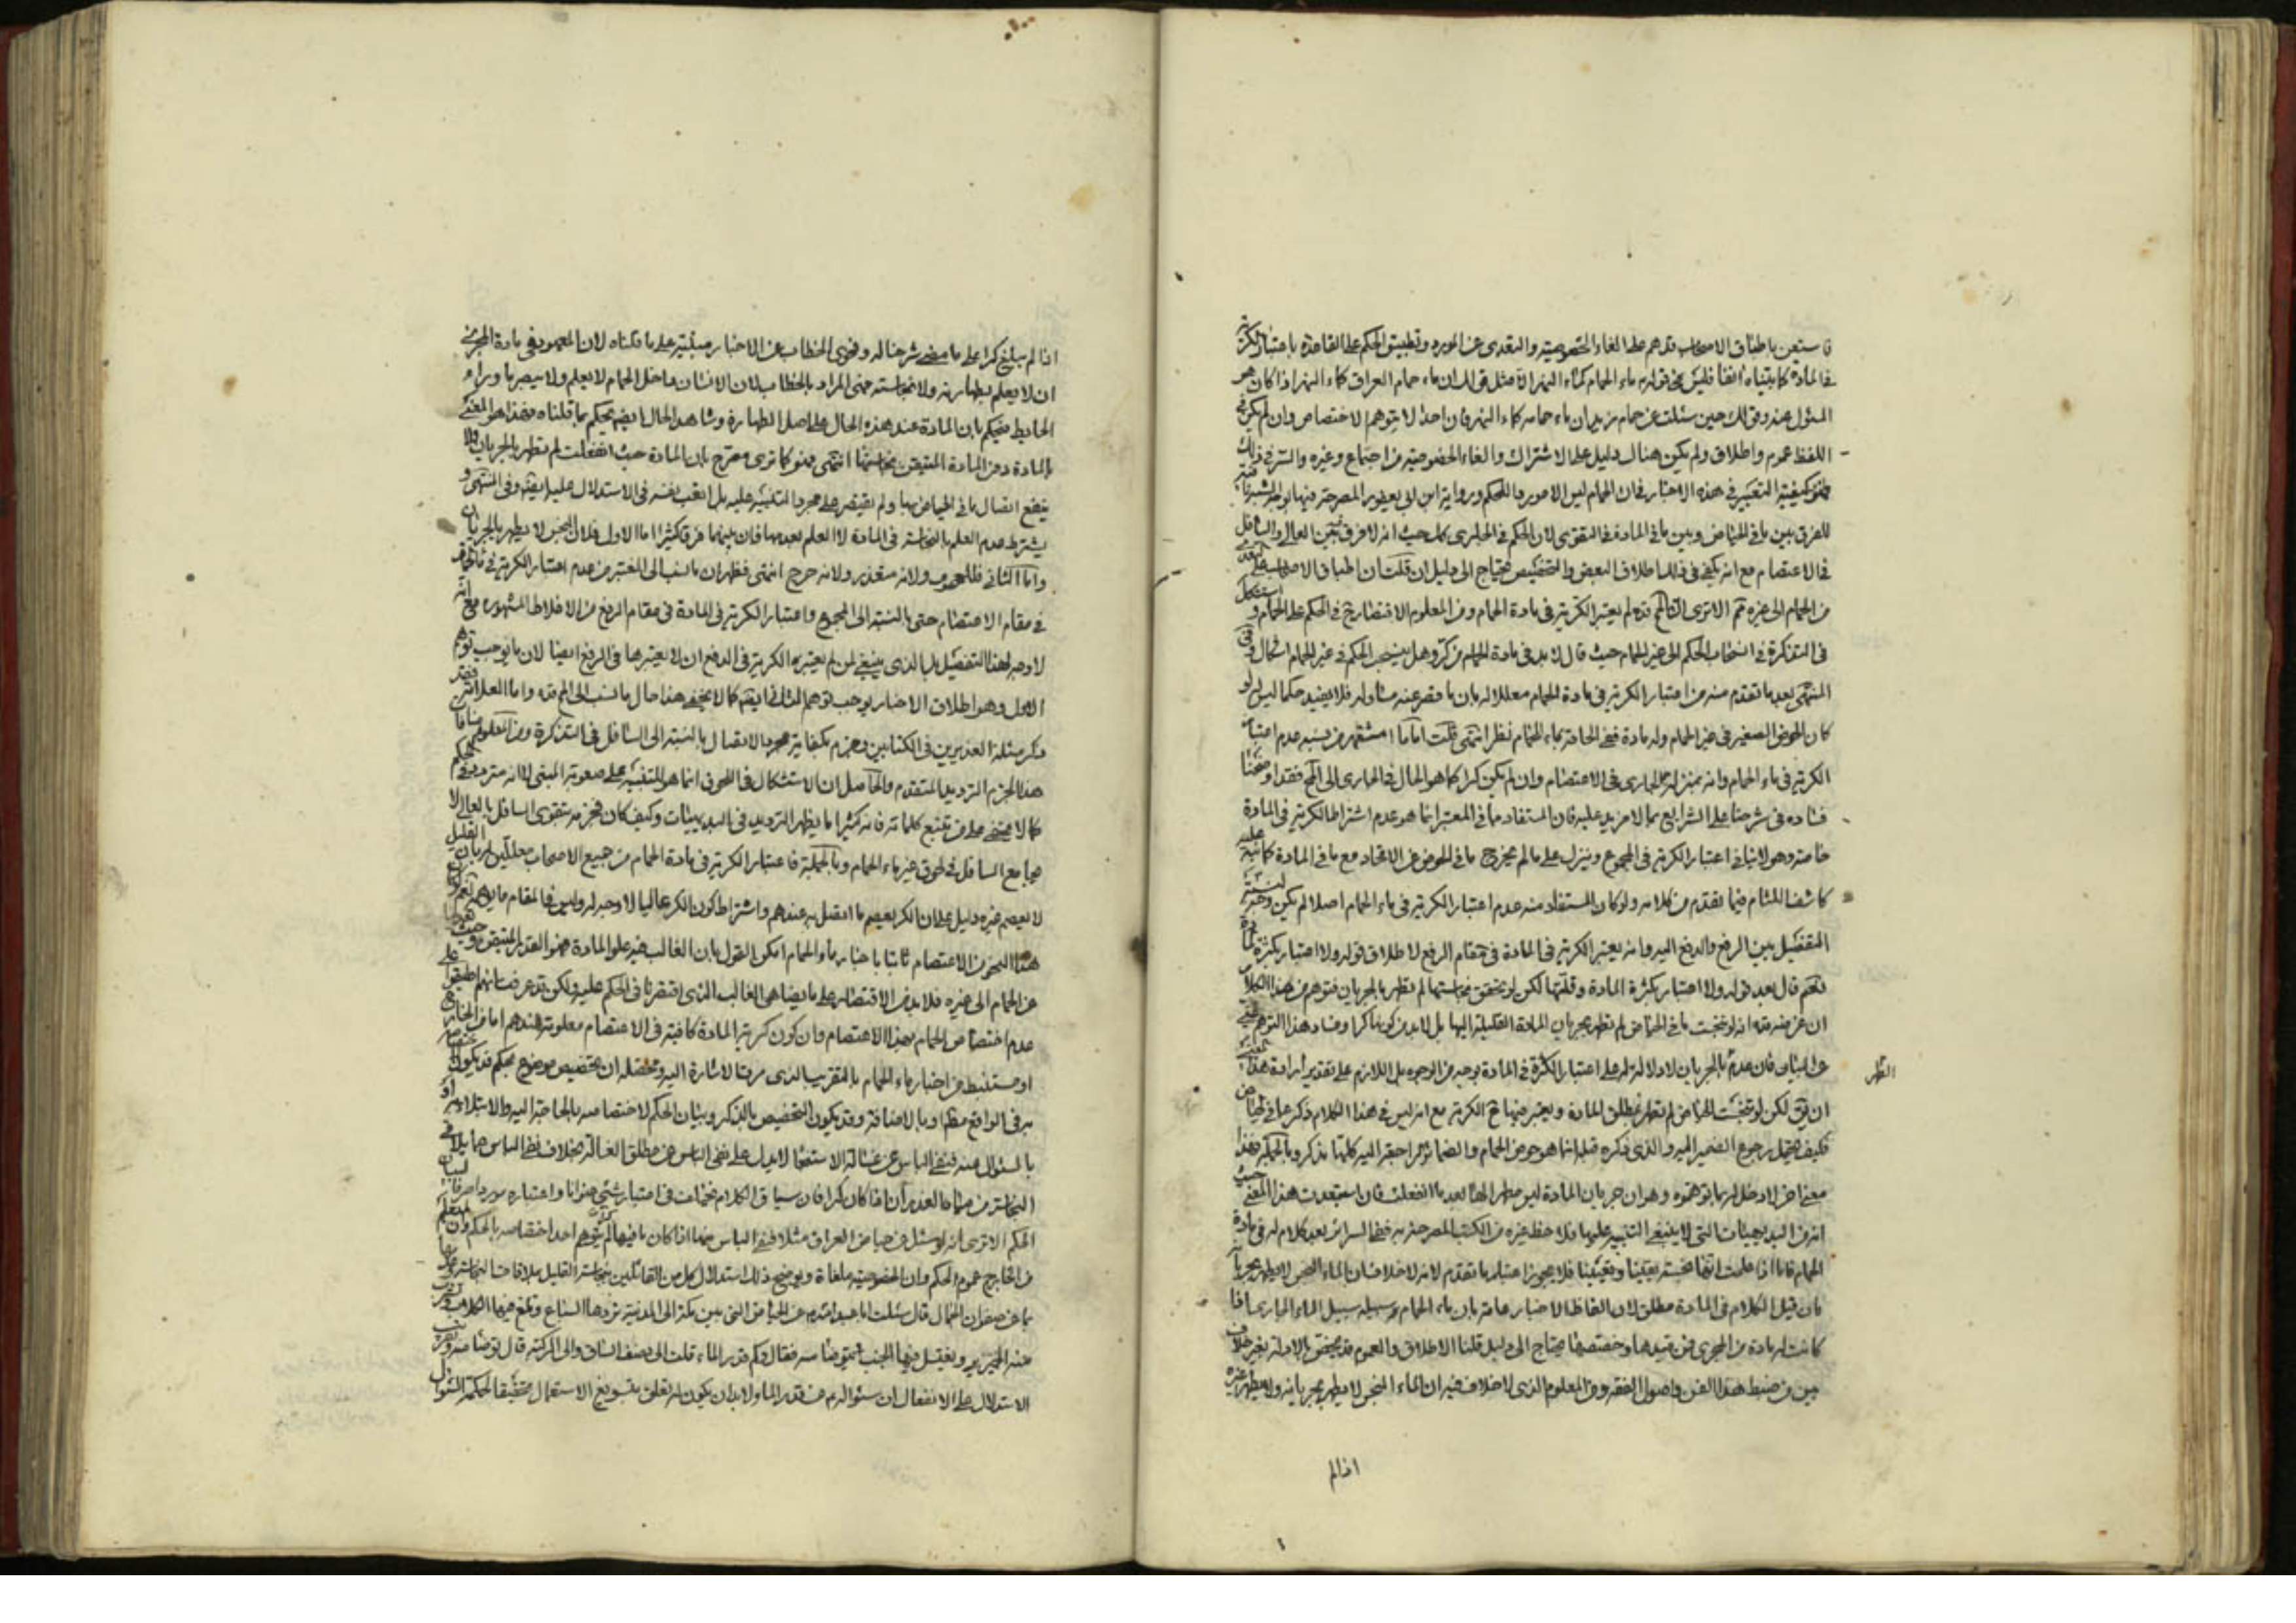 فاستعن باطباق الاصحاب قدهم على الغاء الخصوصية والتعدى عن المورد وتطبيق الحكم على القاعدة باعتبار الكرية
فى المادة كما بيناه انفا فليس قوله ماء الحمام كماء النهر الا مثل قولك ان ماء حمام العراق كماء النهر اذا كان هو
المسئول عنه وقولك حين سئلت عن حمام زيد ان ماء حمامه كماء النهر فان احدا لا يتوهم الاختصاص وان لم يكن فى
اللفظ عموم واطلاق ولم يكن هناك دليل على الاشتراك والغاء الخصوصية من اجماع وغيره والسر فى ذلك
كيفية التعبير فى هذه الاخبار فان الحمام ليس الا موردا للحكم ورواية ابن ابى يعفور المصرحة
للفرق بين ما فى الحياض وبين ما فى المادة فى التقوى لان الحكم فى الجارى كك حيث انه لا فرق بين العالى والسافل
فى الاعتصام مع انه يكفى فى ذلك اطلاق البعض والتخصيص يحتاج الى دليل ان قلت ان اطباق الاصحاب على
من الحمام الى غيره ثم الا ترى قده لم يعتبر الكرية فى مادة الحمام ومن المعلوم الاقتصار فى الحكم على الحمام و استشكل
فى التذكرة فى انسحاب الحكم الى غير الحمام حيث قال لا بد فى مادة الحمام من كر وهل ينسحب الحكم فى غير الحمام اشكال وفى
المنتهى بعد ما تقدم منه من اعتبار الكرية فى مادة الحمام معللا له بان ما قصر عنه مساو له فلا يفيد حكما ليس له لو
كان الحوض الصغير فى غير الحمام وله مادة ففى الحاقه بماء الحمام نظر انتهى قلت اما ما اشتهر من نسبه عدم اعتبار
الكرية فى ماء الحمام وانه بمنزلة الجارى فى الاعتصام وان لم يكن كرا كما هو الحال فى الجارى الى فقد اوضحنا
فساده فى شرحنا على الشرايع بما لا مزيد عليه فان المستفاد مما فى المعتبر انما هو عدم اشتراط الكرية فى المادة
خاصة وهو لا ينافى اعتبار الكرية فى المجموع وينزل على ما لم يخرج ما فى الحوض عن الاتحاد مع ما فى المادة كما نبه عليه
كاشف اللثام فيما تقدم من كلامه ولو كان المستفاد منه عدم اعتبار الكرية فى ماء الحمام اصلا لم يكن وجه لنسبة
التفصيل بين الرفع والدفع اليه وانه يعتبر الكرية فى المادة فى مقام الرفع لاطلاق قوله ولا اعتبار بكثرة المادة
نعم قال بعد قوله ولا اعتبار بكثرة المادة وقلتها لكن لو تحقق نجاستها لم تطهر بالجريان فتوهم من هذا الكلام
ان غرضه قده انه لو نجست ما فى الحياض لم تطهر بجريان المادة القليلة اليها بل لا بد من كونها كرا وفساد هذا التوهم
عن البيان فان عدم بالجريان لا دلالة له على اعتبار الكثرة فى المادة بوجه من الوجوه بل اللازم على تقدير ارادة هذا
ان يق لكن لو نجست الحياض لم تطهر بمطلق المادة ويعتبر فيها ح الكرية مع انه ليس فى هذا الكلام ذكر عما فى الحياض
فكيف يحتمل رجوع الضمير اليه والذى ذكره قبله انما هو حوض الحمام والضماير الراجعة اليه كلها مذكر وبالجملة فهذا
معنا اخر لا دخل له بما توهموه وهو ان جريان المادة ليس مطهرا لها بعد ما انفعلت فان استبعدت هذا المعنى حيث
انه من البديهيات التى لا ينبغى التنبيه عليها فلاحظ غيره من الكتب المصرحة به ففى السرائر بعد كلام له فى مادة
الحمام فاما اذا علمت انها نجسة يقينا وتعيينا فلا يجوز اعتبار ما تقدم لانه لا خلاف ان الماء النجس لا يطهر بجريانه
فان قيل الكلام فى المادة مطلق لان الفاظ الاخبار عامة بان ماء الحمام سبيله سبيل الماء الجارى اذا
كانت له مادة من المجرى فمن قيدها وخصصها يحتاج الى دليل قلنا الاطلاق والعموم قد يخص بالادلة بغير خلاف
بين من ضبط هذا الفن واصول الفقه ومن المعلوم الذى لا خلاف فيه ان الماء النجس لا يطهر بجريانه ولا يطهر غيره
اذا لم
اذا لم يبلغ كرا على ما مضى شرحنا له وفحوى الخطاب من الاخبار مبنية على ما قلناه لان المعهود فى مادة المجرى
ان لا يعلم بطهارته ولا نجاسته فهى المراد بالخطاب لان الانسان داخل الحمام لا يعلم ولا يبصر ما وراء
الحايط فيحكم بان المادة عند هذه الحال على اصل الطهارة وشاهد الحال ايضا يحكم بما قلناه فهذا هو المعنى
بالمادة دون المادة المتيقن نجاستها انتهى فهو كما ترى مصرح بان المادة حيث انفعلت لم تطهر بالجريان ولا
ينفع اتصال ما فى الحياض بها ولم يقتصر على مجرد التنبيه عليه بل اتعب نفسه فى الاستدلال عليه ايضا وفى المنتهى
يشترط عدم العلم بالنجاسة فى المادة لا العلم بعدمها فان بينهما فرقا كثيرا اما الاول فلان النجس لا يطهر بالجريان
واما الثانى فللعموم ولانه متعذر ولانه حرج انتهى فظهر ان ما نسب الى المعتبر من عدم اعتبار الكرية فى ماء الحمام
فى مقام الاعتصام حتى بالنسبة الى المجموع واعتبار الكرية فى المادة فى مقام الرفع من الاغلاط المشهورة مع انه
لا وجه لهذا التفصيل بل الذى ينبغى لمن لم يعتبر الكرية فى الدفع ان لا يعتبرها فى الرفع ايضا لان ما يوجب توهم
الاول وهو اطلاق الاخبار يوجب توهم الثانى ايضا كما لا يخفى هذا حال ما نسب الى المحقق قده واما العلامة فقد
ذكر مسئلة الغديرين فى الكتابين وجزم بكفاية مجرد الاتصال بالنسبة الى السافل فى التذكرة ومن المعلوم منافاة
هذا الجزم الترديد المتقدم والحاصل ان الاستشكال فى اللحوق انما هو للتنبيه على صعوبة المبنى لا انه متردد فى الحكم
كما لا يخفى على من تتبع كلماته فانه كثيرا ما يظهر الترديد فى البديهيات وكيف كان فجزمه بتقوى السافل بالعالى لا
يجامع السافل فى لحوق غير ماء الحمام وبالجملة فاعتبار الكرية فى مادة الحمام من جميع الاصحاب معللين له بان القليل
لا يعصم غيره دليل على ان الكر يعصم ما اتصل به عندهم واشتراط كون الكر عاليا لا وجه له وليس فى المقام ما
هذا النحو من الاعتصام ثابتا باخبار ماء الحمام امكن القول بان الغالب فيه علو المادة فهو القدر المتيقن وحيث
عن الحمام الى غيره فلا بد من الاقتصار على ما يضاهى الغالب الذى اقتصرنا فى الحكم عليه ولكن قد عرفت انهم اطبقوا على
عدم اختصاص الحمام بهذا الاعتصام وان كون كرية المادة كافية فى الاعتصام معلومة عندهم اما من الخارج
او مستنبط من اخبار ماء الحمام بالتقريب الذى مرت الاشارة اليه ومحصله ان تخصيص موضوع بحكم قد يكون لاختصاصه
به فى الواقع مطلقا او بالاضافة وقد يكون التخصيص بالذكر وبيان الحكم لاختصاصه بالحاجة اليه والابتلاء به او
بالسئوال عنه فنفى الباس عن غسالة الاستنجاء لا يدل على نفى الباس عن مطلق الغسالة بخلاف نفى الباس عما يلاقى
النجاسة من مثل ماء الغدير ان اذا كان كرا فان سياق الكلام يختلف فى اعتبار شئ عنوانا واعتباره موردا صرفا لبيان
الحكم الا ترى انه لو سئل عن حياض العراق مثلا فنفى الباس عنها اذا كان ما فيها كرا لم يتوهم احد اختصاصه بالحكم وان لم يعلم
من الخارج عموم الحكم وان الخصوصية ملغاة ويوضح ذلك استدلال كل من القائلين بنجاسة القليل بملاقات النجاسة وعدمها
بما عن صفوان الجمال قال سئلت ابا عبد الله عن الحياض التى بين مكة الى المدينة تردها السباع وتلغ فيها الكلاب وتشرب
منه الحمير ويغتسل فيها الجنب ايتوضا منه فقال وكم قدر الماء قلت الى نصف الساق والى الركبة قال توضا منه
الاستدلال على الانفعال ان سئواله ع عن قدر الماء لا بد ان يكون له تعلق بتسويغ الاستعمال تحقيقا لحكمة السئوال